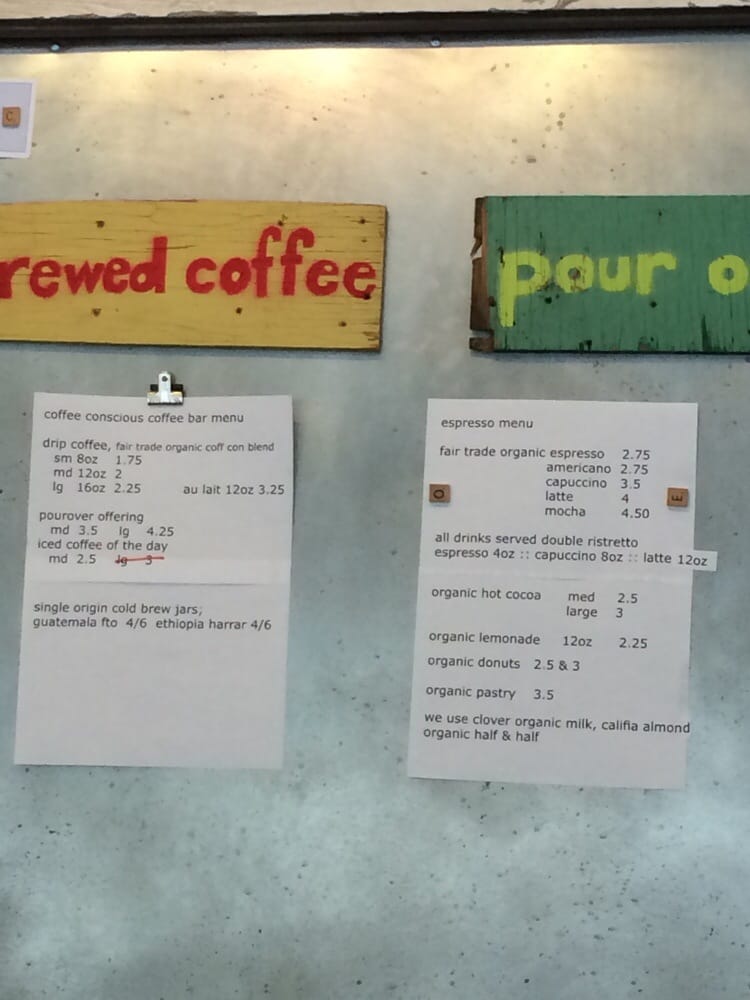 C
rewed coffee
pour o
coffee conscious coffee bar menu
drip coffee, fair trade organic coff con blend
sm 8oz 1.75
md 12oz 2
lg 16oz 2.25 au lait 12oz 3.25
pourover offering
md 3.5 lg 4.25
iced coffee of the day
md 2.5 lg 3
single origin cold brew jars;
guatemala fto 4/6 ethiopia harrar 4/6
espresso menu
fair trade organic espresso 2.75
americano 2.75
capuccino 3.5
latte 4
mocha 4.50
O
E
all drinks served double ristretto
espresso 4oz :: capuccino 8oz :: latte 12oz
organic hot cocoa med 2.5
large 3
organic lemonade 12oz 2.25
organic donuts 2.5 & 3
organic pastry 3.5
we use clover organic milk, califia almond
organic half & half